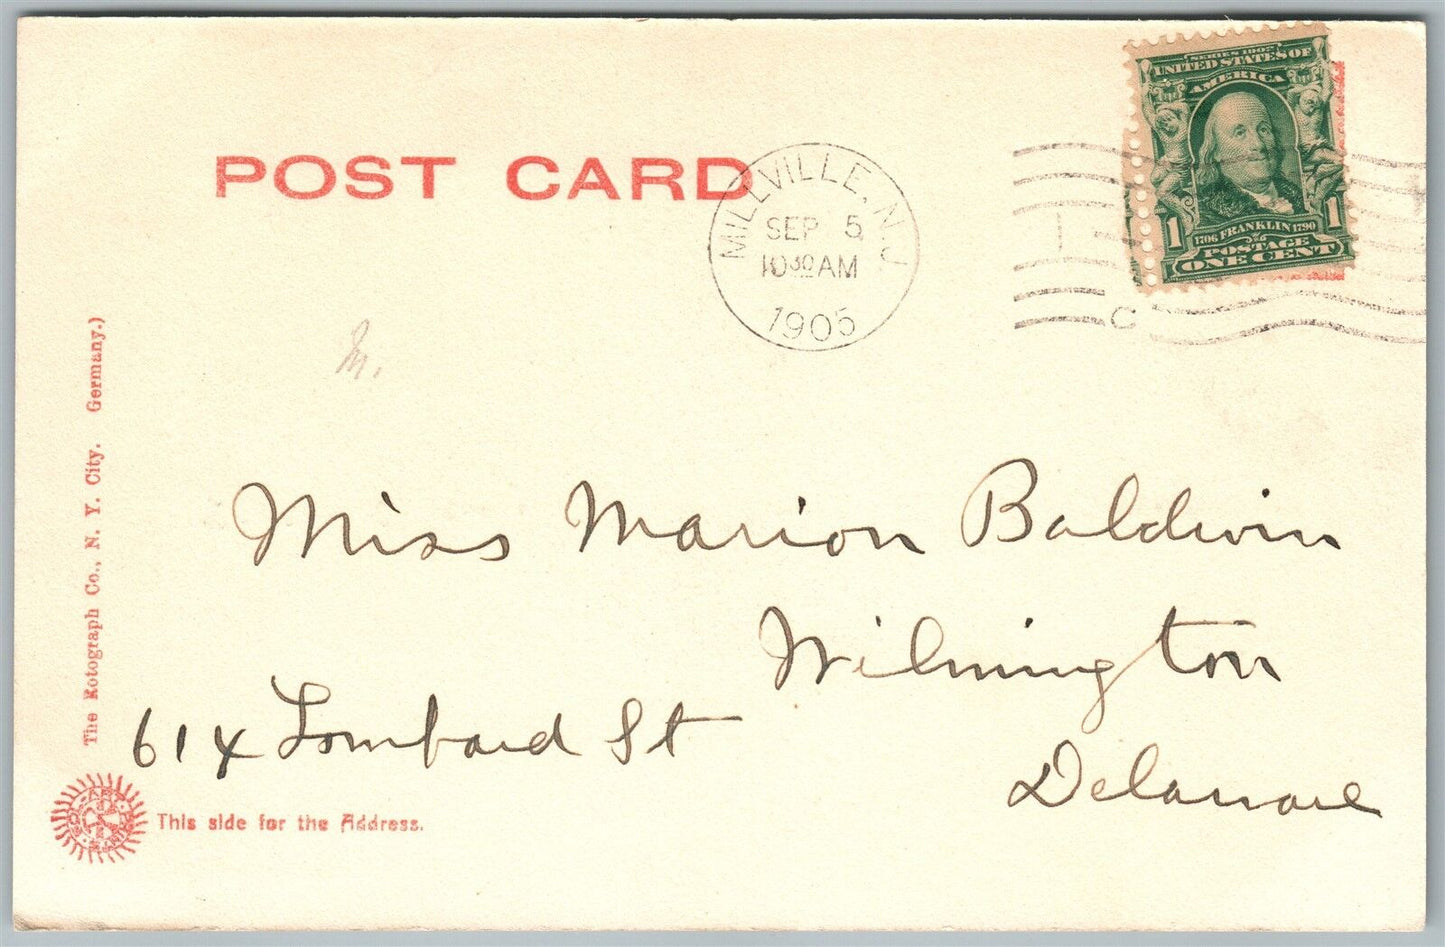 POST CARD
MILLVILLE, N.J.
SEP 5
10 30 AM
1905
C
SERIES 1902
UNITED STATES OF
AMERICA
1 1706 FRANKLIN 1790 1
POSTAGE
ONE CENT
M.
Miss Marion Baldwin
Wilmington
614 Lombard St
Delaware
The Rotograph Co., N. Y. City. Germany.)
This side for the Address.